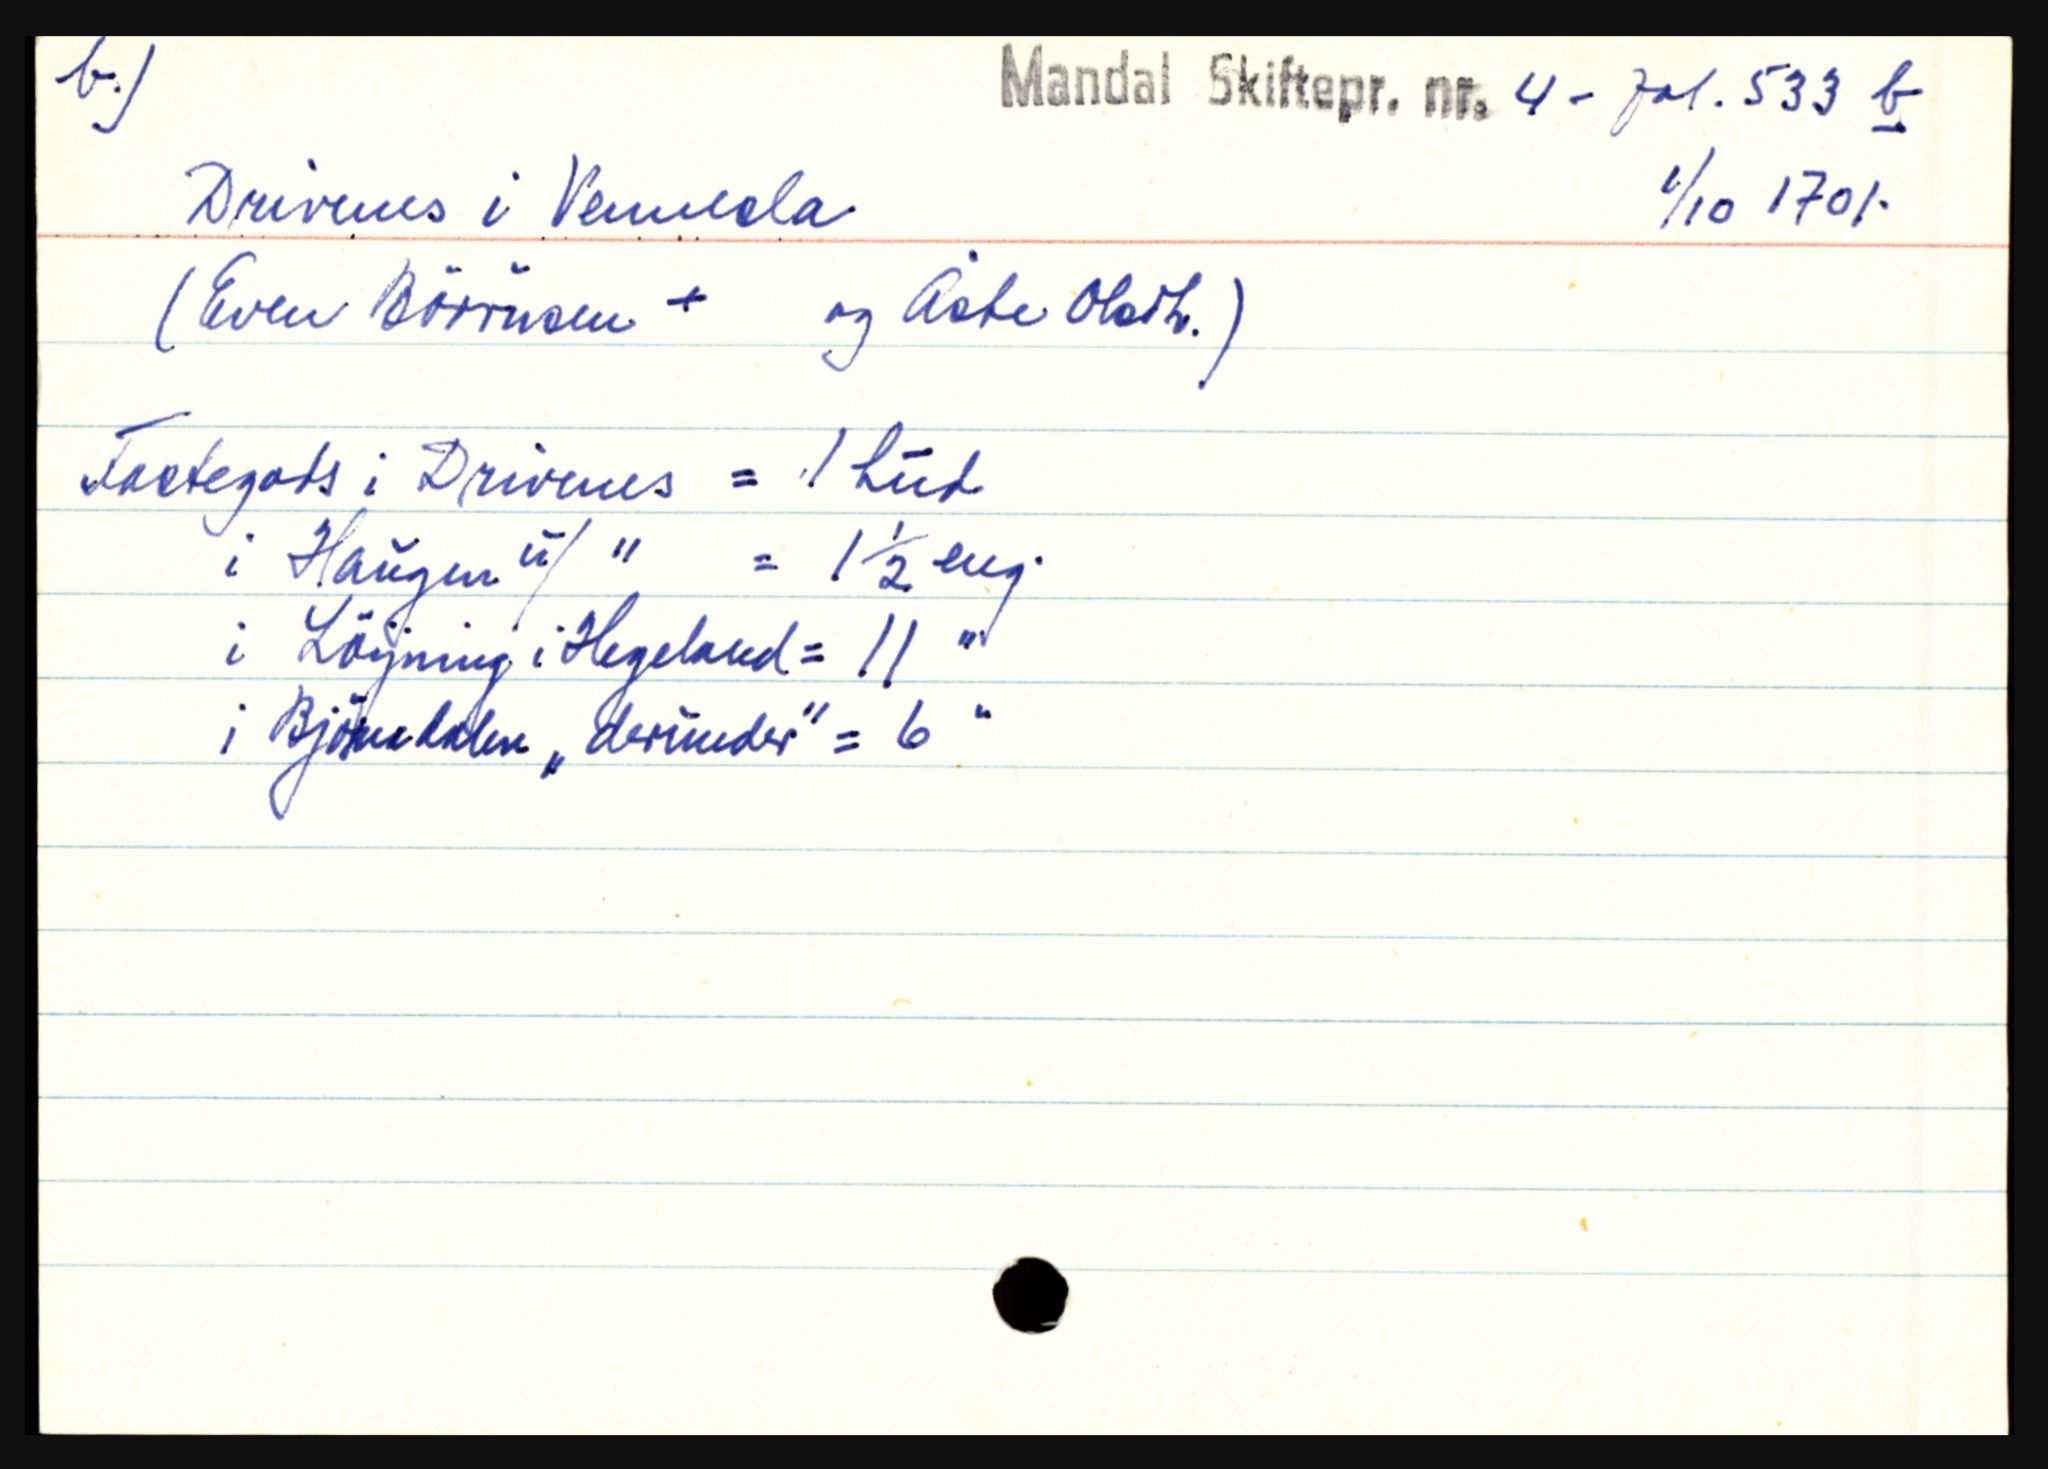 b.) Mandal Skiftepr. nr. 4 - fol. 533 b
Drivenes i Vennesla 1/10 1701.
(Even Börrŭsen + og Åste Olsdt.)
Fastegods i Drivenes = 1 hŭd
i Haŭgen ŭ/ " = 1 1/2 eng.
i Löyning i Hegeland = 11 "
i Björndalen „derŭnder" = 6 "